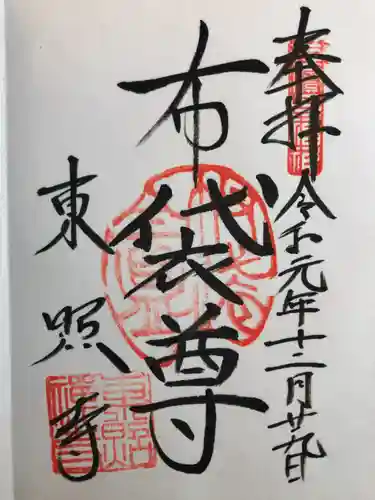 奉拝
令和元年十二月廿九日
布袋尊
東照寺